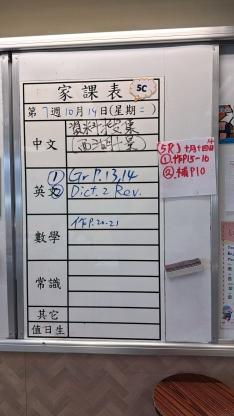 家課表 5C
第7週10月14日(星期二)
中文
資料搜集
(西湖十景)
英文
① Gr P.13,14
② Dict. 2 Rev.
數學
作P.20-21
常識
其它
值日生
5R) 十月十四日
①.作P15-16
②.補P10